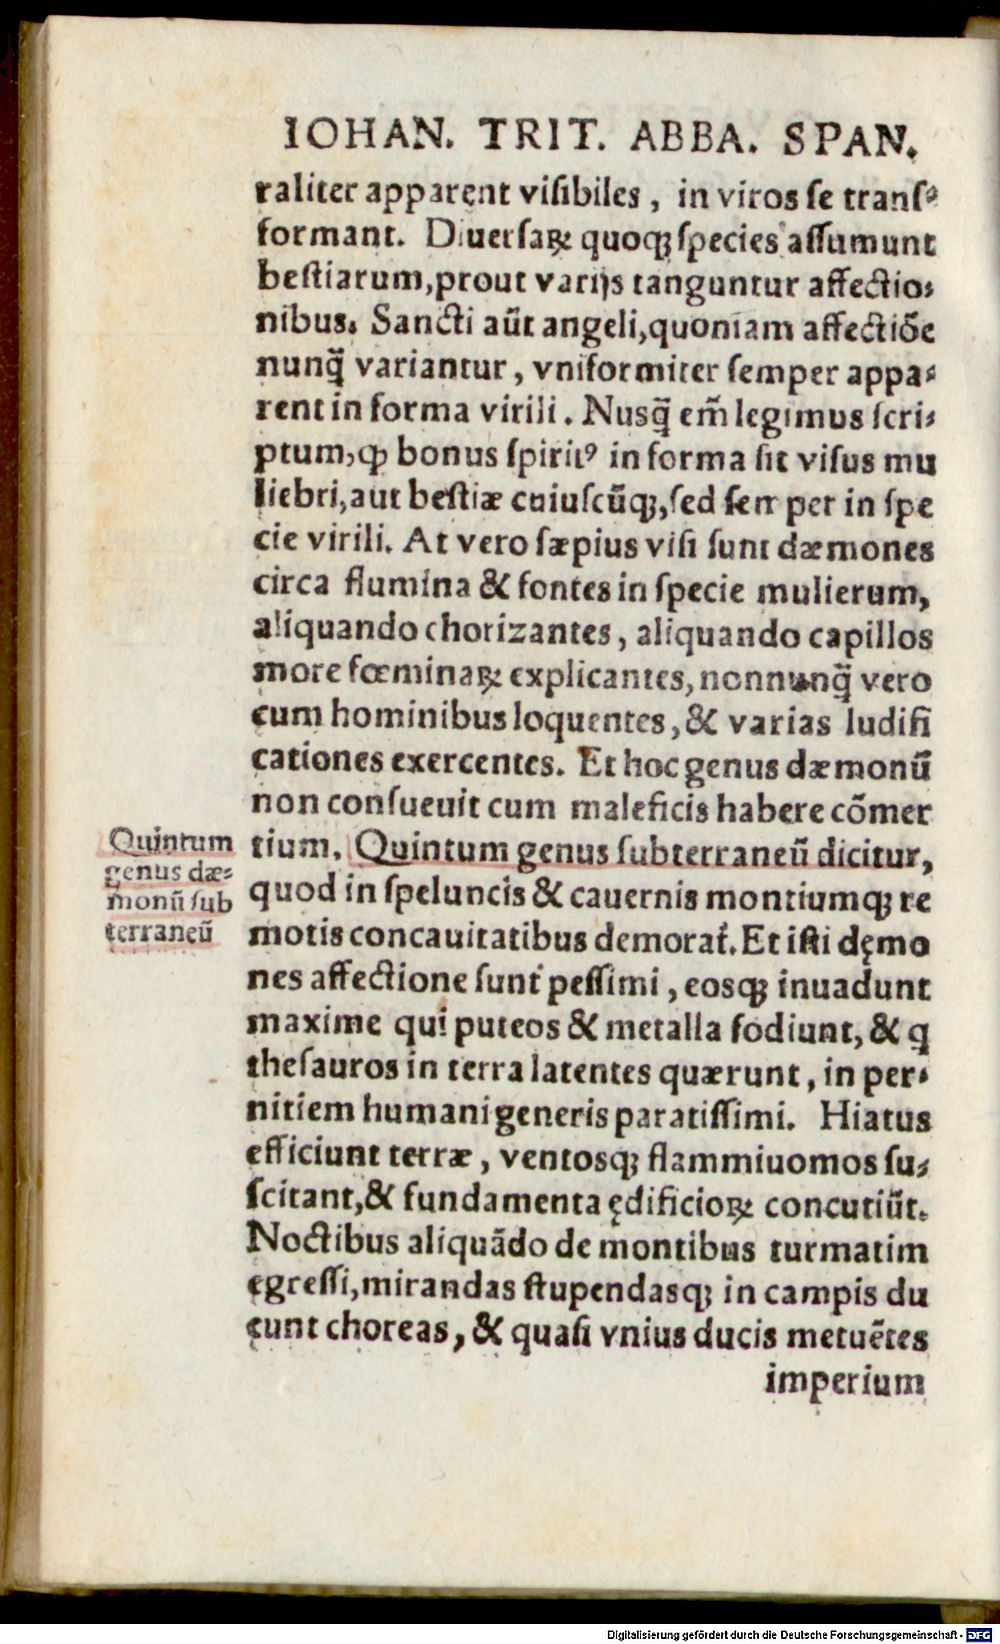 IOHAN. TRIT. ABBA. SPAN.
raliter apparent visibiles, in viros se trans⸗
formant. Diuersaꝝ quoqꝫ species assumunt
bestiarum, prout varijs tanguntur affectio⸗
nibus. Sancti aũt angeli, quoniam affectiõe
nunq̃ variantur, vniformiter semper appa⸗
rent in forma virili. Nusq̃ em̃ legimus scri⸗
ptum, ꝙ bonus spiritꝰ in forma sit visus mu
liebri, aut bestiæ cuiuscũqꝫ, sed semper in spe
cie virili. At vero sæpius visi sunt dæmones
circa flumina & fontes in specie mulierum,
aliquando chorizantes, aliquando capillos
more fœminaꝝ explicantes, nonnunq̃ vero
cum hominibus loquentes, & varias ludifi
cationes exercentes. Et hoc genus dæmonũ
non consueuit cum maleficis habere cõmer
tium. Quintum genus subterraneũ dicitur,
quod in speluncis & cauernis montiumqꝫ re
motis concauitatibus demorat᷑. Et isti dęmo
nes affectione sunt pessimi, eosqꝫ inuadunt
maxime qui puteos & metalla fodiunt, & q
thesauros in terra latentes quærunt, in per⸗
nitiem humani generis paratissimi. Hiatus
efficiunt terræ, ventosqꝫ flammiuomos su⸗
scitant, & fundamenta ędificioꝝ concutiũt.
Noctibus aliquãdo de montibus turmatim
egressi, mirandas stupendasqꝫ in campis du
cunt choreas, & quasi vnius ducis metuẽtes
imperium
Quintum
genus dæ⸗
monũ sub
terraneũ
Digitalisierung gefördert durch die Deutsche Forschungsgemeinschaft - DFG